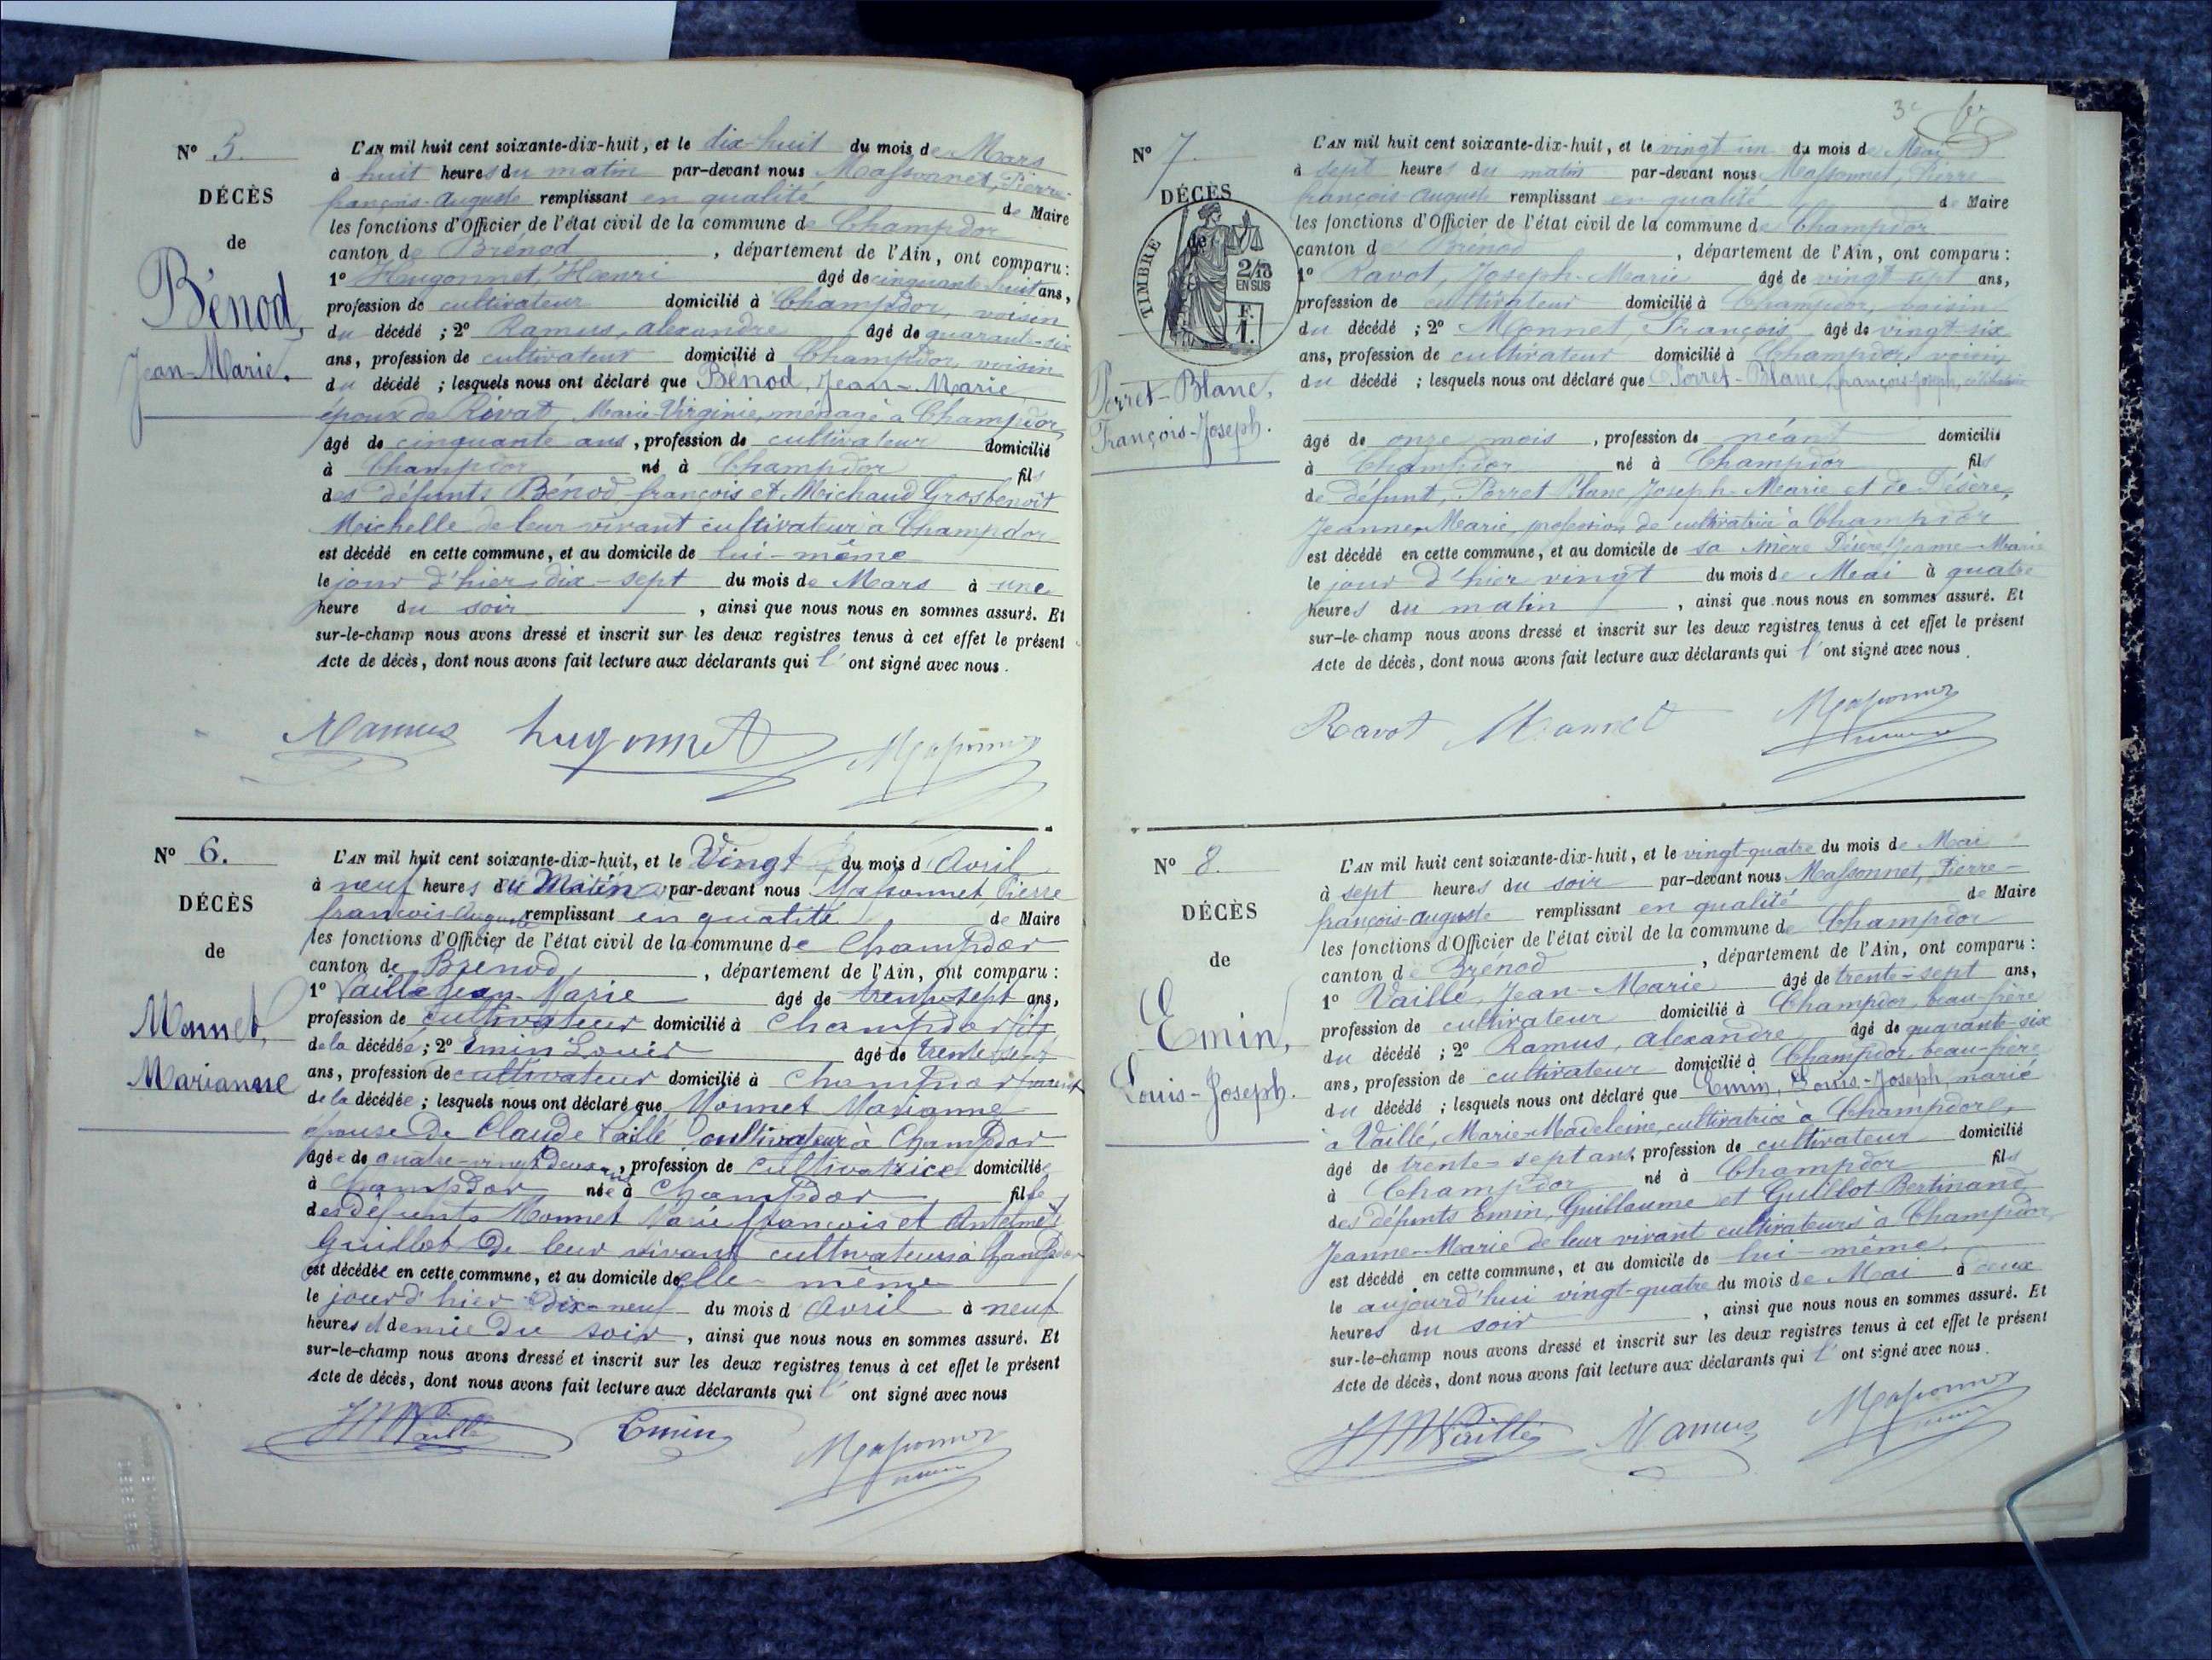 N° 5.
DÉCÈS
de
Bénod,
Jean-Marie.
L'AN mil huit cent soixante-dix-huit, et le dix-huit du mois de Mars
à huit heures du matin par-devant nous Massonnet, Pierre-
françois-Auguste remplissant en qualité de Maire
les fonctions d'Officier de l'état civil de la commune de Champdor
canton de Brénod, département de l'Ain, ont comparu :
1° Hugonnet, Henri âgé de cinquante-huit ans,
profession de cultivateur domicilié à Champdor, voisin
du décédé ; 2° Ramus, alexandre âgé de quarante-six
ans, profession de cultivateur domicilié à Champdor, voisin
du décédé ; lesquels nous ont déclaré que Bénod, Jean-Marie
époux de Rivat, Marie-Virginie, ménagè a Champdor,
âgé de cinquante ans, profession de cultivateur domicilié
à Champdor né à Champdor fils
des défunts Bénod françois et Michaud Grosbenoit
Michelle de leur vivant cultivateur à Champdor
est décédé en cette commune, et au domicile de lui-même
le jour d'hier dix-sept du mois de Mars à une
heure du soir, ainsi que nous nous en sommes assuré. Et
sur-le-champ nous avons dressé et inscrit sur les deux registres tenus à cet effet le présent
Acte de décès, dont nous avons fait lecture aux déclarants qui l' ont signé avec nous.
Ramus hugonnet Massonnet
N° 6.
DÉCÈS
de
Monnet,
Marianne
L'AN mil huit cent soixante-dix-huit, et le Vingt du mois d'Avril
à neuf heures du Matin par-devant nous Massonnet, Pierre
francois Auguste remplissant en qualité de Maire
les fonctions d'Officier de l'état civil de la commune de Champdor
canton de Brénod, département de l'Ain, ont comparu :
1° Vaillé Jean-Marie âgé de trente-sept ans,
profession de cultivateur domicilié à Champdor fils
de la décédée ; 2° Emin Louis âgé de trente-sept
ans, profession de cultivateur domicilié à Champdor
de la décédée ; lesquels nous ont déclaré que Monnet Marianne
épouse de Claude Vaillé cultivateur à Champdor
âgée de quatre-vingt deux ans, profession de Cultivatrice domiciliée
à Champdor née à Champdor fille
des défunts Monnet Marie françois et Antelmet
Guillot de leur vivant cultivateurs à Champdor
est décédée en cette commune, et au domicile de elle-même
le jour d'hier Dix-neuf du mois d'Avril à neuf
heures et demie du soir, ainsi que nous nous en sommes assuré. Et
sur-le-champ nous avons dressé et inscrit sur les deux registres tenus à cet effet le présent
Acte de décès, dont nous avons fait lecture aux déclarants qui l' ont signé avec nous
JM Vaillé Emin Massonnet
3e
N° 7.
DÉCÈS
de
TIMBRE
2/10
EN SUS
F.
1.
Perret-Blanc,
François-Joseph.
L'AN mil huit cent soixante-dix-huit, et le vingt un du mois de Mai
à sept heures du matin par-devant nous Massonnet, Pierre
françois Auguste remplissant en qualité de Maire
les fonctions d'Officier de l'état civil de la commune de Champdor
canton de Brénod, département de l'Ain, ont comparu :
1° Ravot, Joseph-Marie âgé de vingt sept ans,
profession de cultivateur domicilié à Champdor, voisin
du décédé ; 2° Monnet, François âgé de vingt-six
ans, profession de cultivateur domicilié à Champdor, voisin
du décédé ; lesquels nous ont déclaré que Perret-Blanc, françois joseph, célibataire
âgé de onze mois, profession de néant domicilié
à Champdor né à Champdor fils
de défunt, Perret Blanc Joseph-Marie et de Désère,
Jeanne-Marie, profession de cultivatrice à Champdor
est décédé en cette commune, et au domicile de sa mère Désère Jeanne-Marie
le jour d'hier vingt du mois de Mai à quatre
heures du matin, ainsi que nous nous en sommes assuré. Et
sur-le-champ nous avons dressé et inscrit sur les deux registres tenus à cet effet le présent
Acte de décès, dont nous avons fait lecture aux déclarants qui l' ont signé avec nous.
Ravot Monnet Massonnet
N° 8.
DÉCÈS
de
Emin,
Louis-Joseph.
L'AN mil huit cent soixante-dix-huit, et le vingt-quatre du mois de Mai
à sept heures du soir par-devant nous Massonnet, Pierre-
françois-auguste remplissant en qualité de Maire
les fonctions d'Officier de l'état civil de la commune de Champdor
canton de Brénod, département de l'Ain, ont comparu :
1° Vaillé, Jean-Marie âgé de trente-sept ans,
profession de cultivateur domicilié à Champdor, beau-frère
du décédé ; 2° Ramus, alexandre âgé de quarante-six
ans, profession de cultivateur domicilié à Champdor, beau-frère
du décédé ; lesquels nous ont déclaré que Emin, Louis-Joseph, marié
à Vaillé, Marie-Madeleine, cultivatrice à Champdor,
âgé de trente-sept ans, profession de cultivateur domicilié
à Champdor né à Champdor fils
des défunts Emin, Guillaume et Guillot-Bertinand
Jeanne-Marie de leur vivant cultivateurs à Champdor,
est décédé en cette commune, et au domicile de lui-même,
le aujourd'hui vingt-quatre du mois de Mai à deux
heures du soir, ainsi que nous nous en sommes assuré. Et
sur-le-champ nous avons dressé et inscrit sur les deux registres tenus à cet effet le présent
Acte de décès, dont nous avons fait lecture aux déclarants qui l' ont signé avec nous.
JM Vaillé Ramus Massonnet